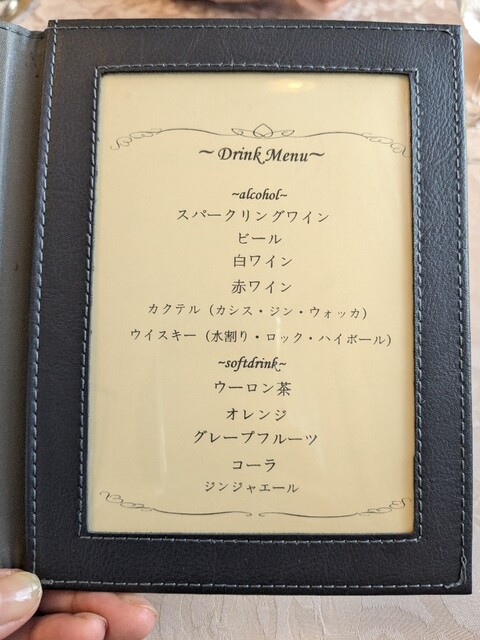 ～Drink Menu～
~alcohol~
スパークリングワイン
ビール
白ワイン
赤ワイン
カクテル（カシス・ジン・ウォッカ）
ウイスキー（水割り・ロック・ハイボール）
~softdrink~
ウーロン茶
オレンジ
グレープフルーツ
コーラ
ジンジャエール